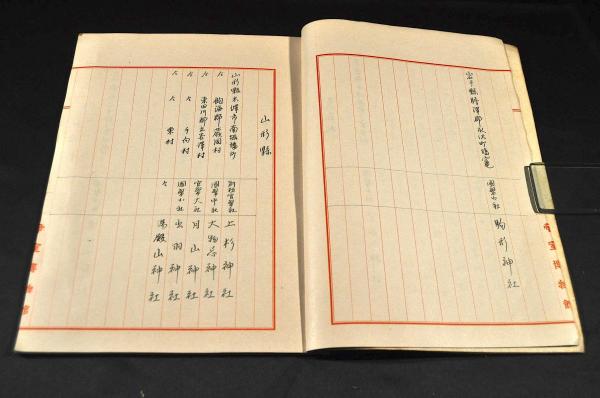 岩手縣膽澤郡水沢町塩竈 國幣小社 駒形神社
山形縣
山形縣米澤市南堀端町 別格官幣社 上杉神社
〃 飽海郡蕨岡村 國幣中社 大物忌神社
〃 東田川郡立谷澤村 官幣大社 月山神社
〃 〃 手向村 國幣小社 出羽神社
〃 〃 東村 〃 湯殿山神社